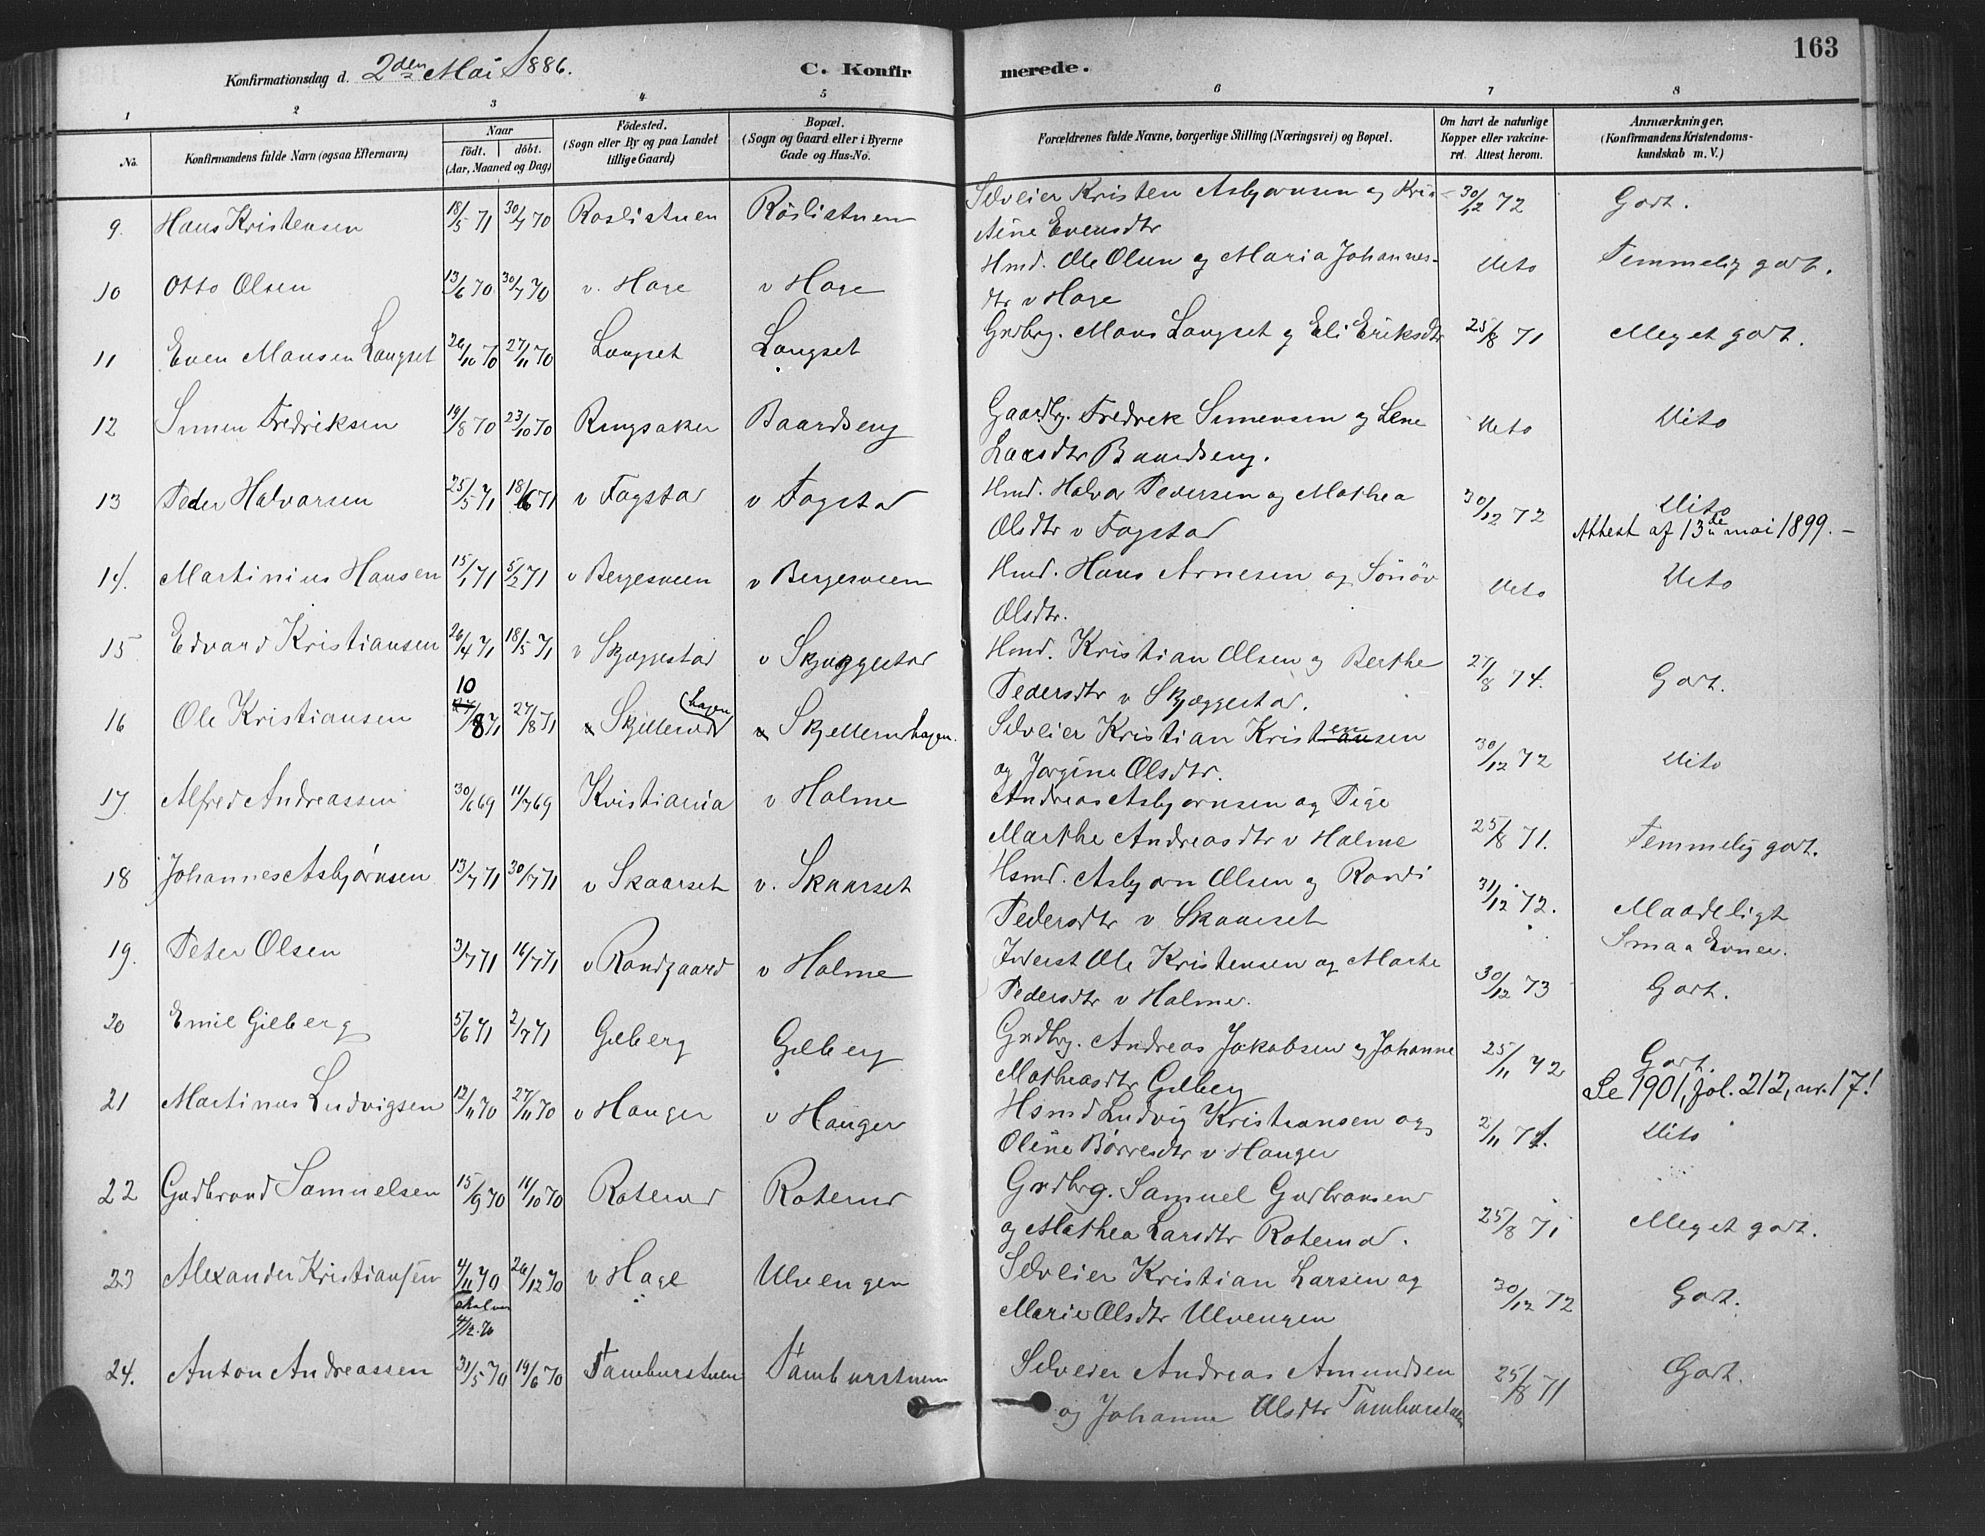 163
Konfirmationsdag d. 2den Mai 1886. C. Konfirmerede.
1 2 3 4 5 6 7 8
No. Konfirmandens fulde Navn (ogsaa Efternavn) Naar født. døbt. (Aar, Maaned og Dag) Fødested. (Sogn eller By og paa Landet tillige Gaard) Bopæl. (Sogn og Gaard eller i Byerne Gade og Hus-No. Forældrenes fulde Navne, borgerlige Stilling (Næringsvei) og Bopæl. Om havt de naturlige Kopper eller vakcineret. Attest herom. Anmærkninger. (Konfirmandens Kristendomskundskab m. V.)
9. Hans Kristensen 18/5 71 30/7 70 Roslistuen Röslistuen Selveier Kristen Asbjørnsen og Kris- 30/12 72 Godt.
tine Evensdtr
10 Otto Olsen 13/6 70 30/7 70 v. Hage v Hage Hmd. Ole Olsen og Maria Johannes- Dito Temmelig godt.
dtr v Hage
11 Even Monsen Langset 26/10 70 27/11 70 Langset Langset Grdbrg. Mons Langset og Eli Eriksdtr 25/8 71 Meget godt.
12 Simen Fredriksen 19/8 70 23/10 70 Ringsaker Baardseng Gaardbg. Fredrik Simensen og Lene Dito Dito
Larsdtr Baardseng.
13 Peder Halvorsen 25/5 71 18/6 71 v Fagstad v Fagstad Hmd. Halvor Pedersen og Mathea 30/12 72 Dito
Olsdtr v Fagstad Attest af 13de mai 1899. –
14. Martinius Hansen 15/1 71 5/2 71 v Bergesveen v Bergesveen Hmd. Hans Arnesen og Sönöv Dito Dito
Olsdtr.
15 Edvard Kristiansen 26/4 71 18/5 71 v Skjæggestad v Skjæggestad Hmd. Kristian Olsen og Berthe 27/8 74. Godt.
Pedersdtr v Skjæggestad.
16 Ole Kristiansen 10/8 71 27/8 71 v Skjellerud (hagen v Skjellerudhagen. Selveier Kristian Kristensen 30/12 72 Dito
og Jørgine Olsdtr.
17 Alfred Andreassen 30/6 69 11/7 69 Kristiania v Holme Andreas Asbjørnsen og Pige
Marthe Andreasdtr v Holme 25/8 71. Temmelig godt.
18 Johannes Asbjørnsen 13/7 71 30/7 71 v Skaarset v. Skaarset Hsmd. Asbjørn Olsen og Randi 31/12 72. Maadeligt
Pedersdtr v Skaarset Smaa Evner.
19. Peter Olsen 3/7 71 16/7 71 v Rondgaard v Holme Inderst Ole Kristensen og Marte 30/12 73 Godt.
Pedersdtr v Holme.
20 Emil Gilberg 5/6 71 2/7 71 Gilberg Gilberg Grdbrg. Andreas Jakobsen og Johanne 25/11 72 Godt.
Matheasdtr Gilberg Se 1901, fol. 212, nr. 17!
21 Martinus Ludvigsen 12/11 70 27/11 70 v Hanger v Hanger Hsmd Ludvig Kristiansen og 2/11 71. Dito
Oline Børresdtr v Hanger
22 Gudbrand Samuelsen 15/9 70 16/10 70 Roterud Roterud Grdbrg. Samuel Gudbransen
og Mathea Larsdtr Roterud. 25/8 71 Meget godt.
23 Alexander Kristiansen 4/11 70 26/12 70 v Hage Ulvengen Selveier Kristian Larsen og 30/12 72 Godt.
skal være 4/12. 70 Marie Olsdtr Ulvengen
24. Anton Andreassen 31/5 70 19/6 70 Tamburstuen Tamburstuen Selveier Andreas Amundsen 25/8 71 Godt.
og Johanne Olsdtr Tamburstuen